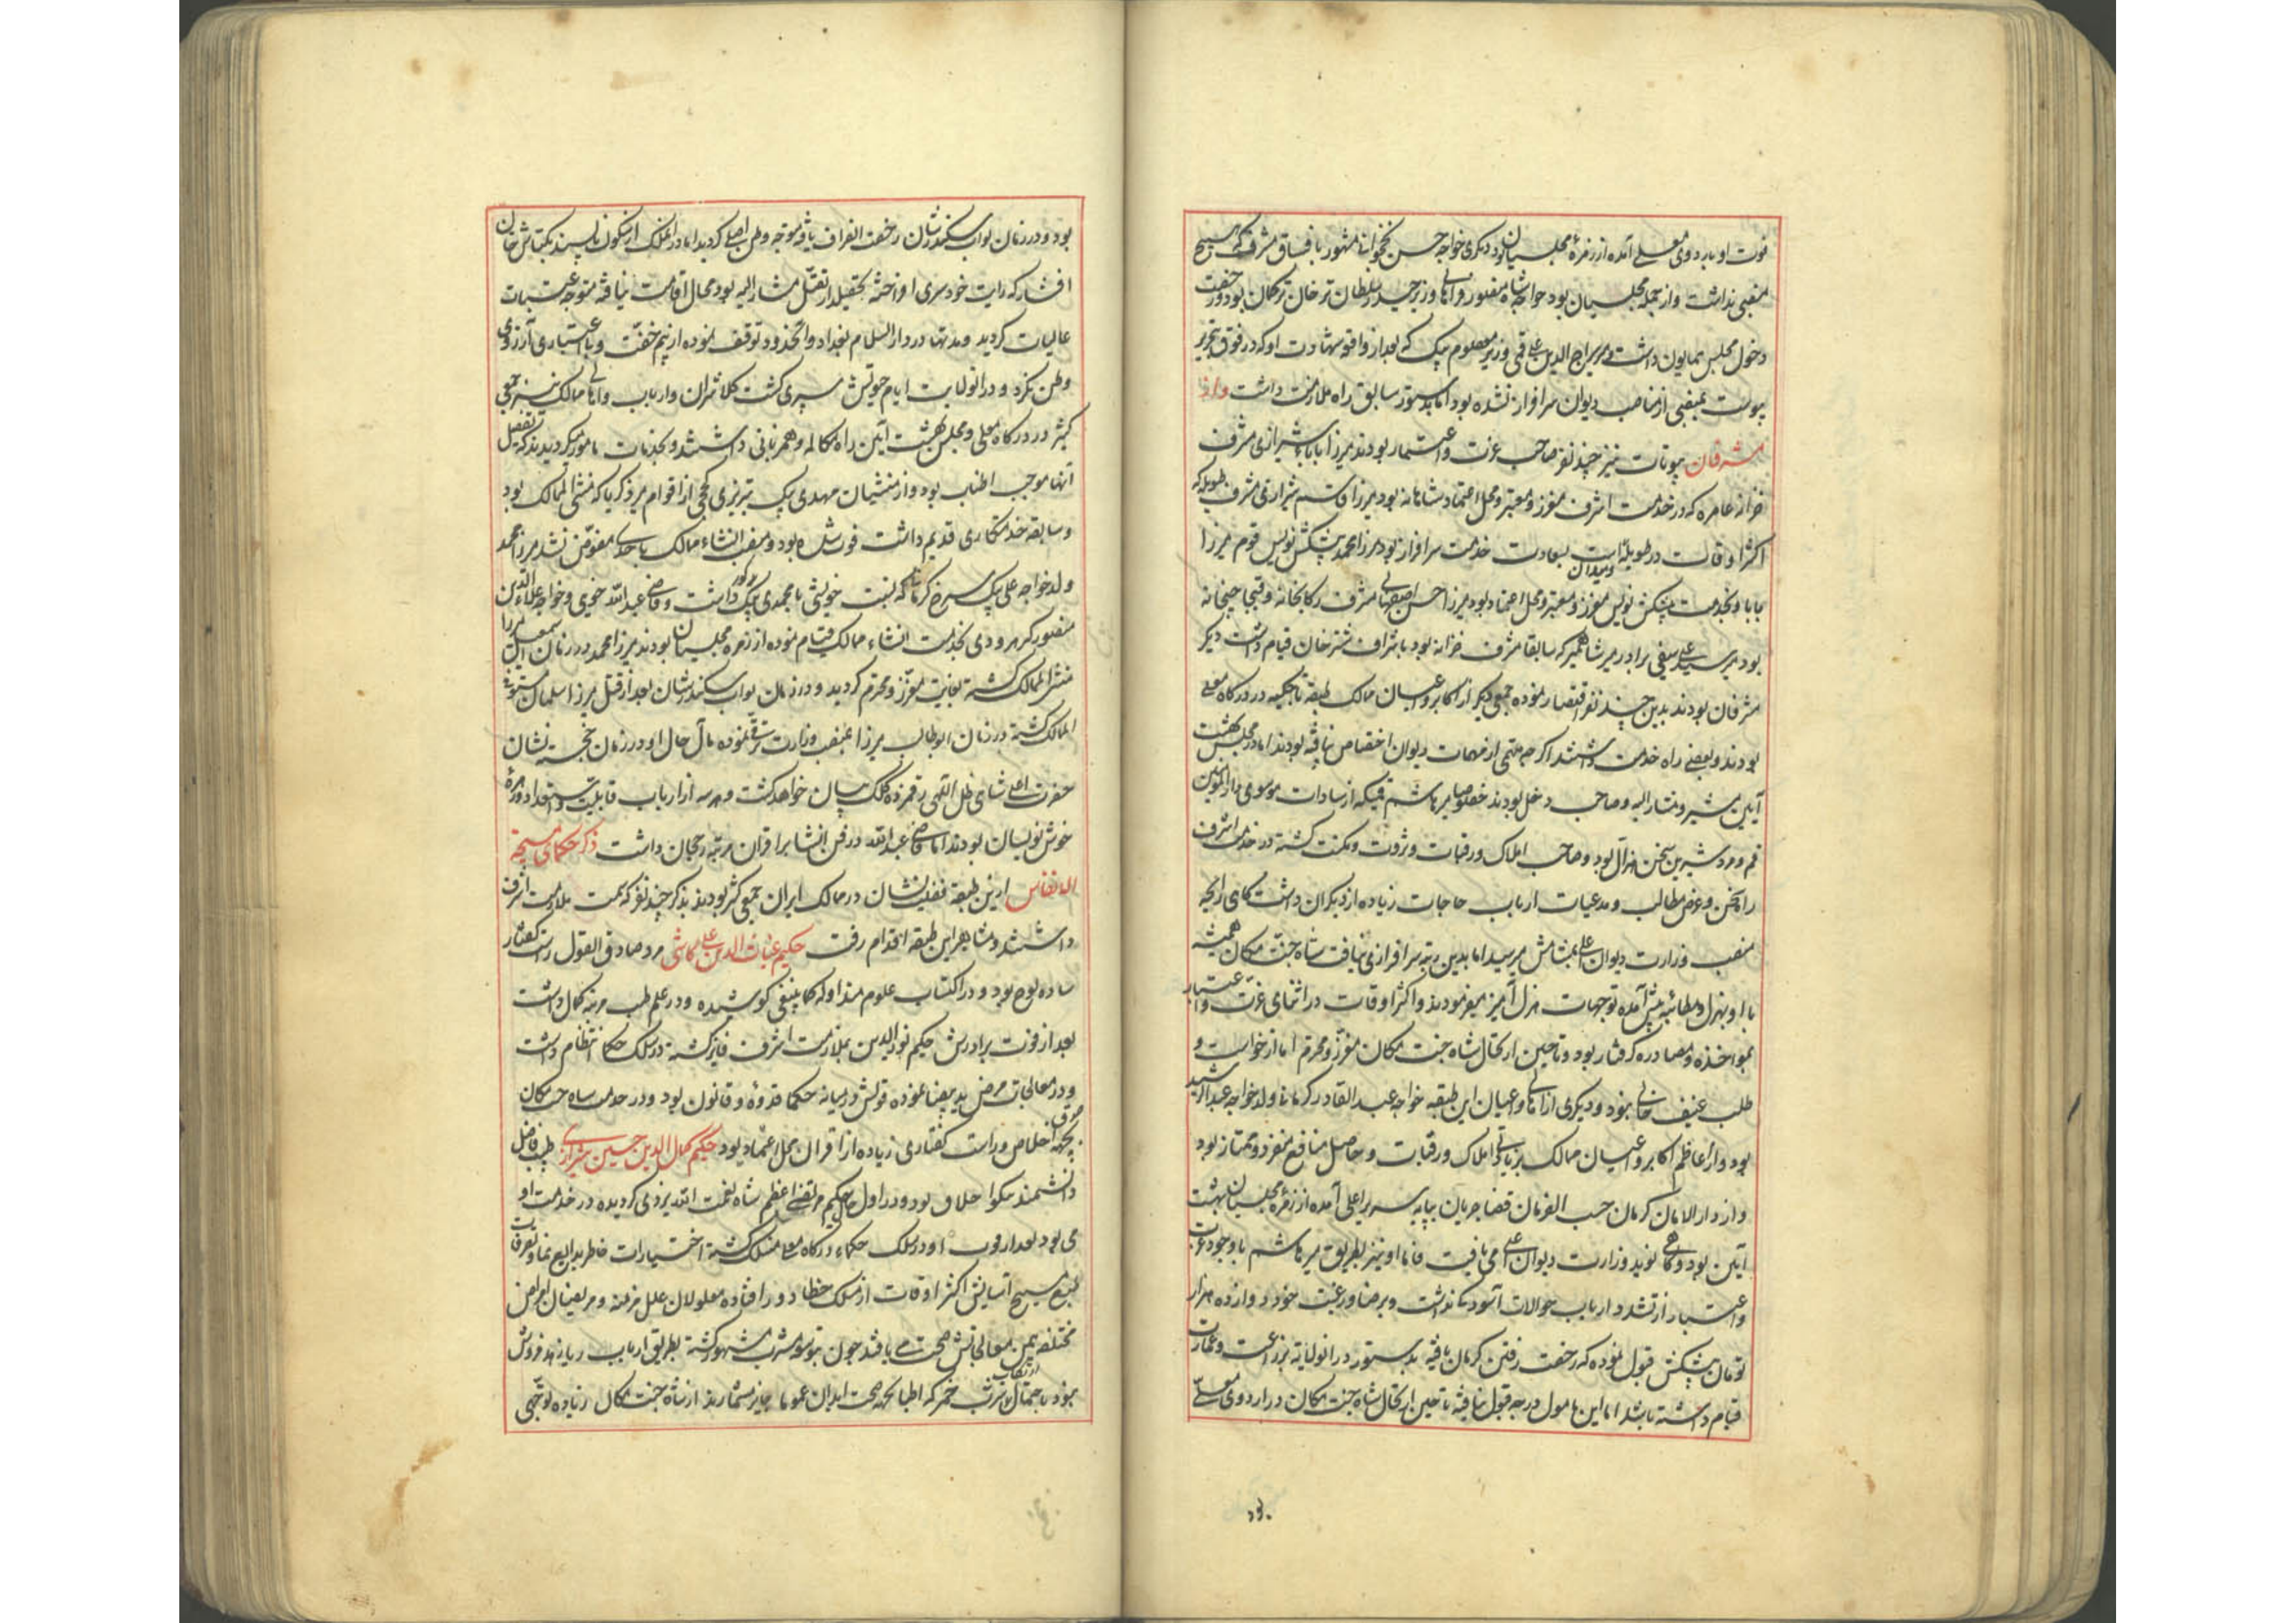 فوت او باردوی معلی آمده از زمرهٔ مجلسیان بود دیگری خواجه حسن نخجوانی مشهور بافساق مشرف که هیچ
منصبی نداشت و از جمله مجلسیان بود خواجه شاه منصور وزیر حیدر سلطان ترخان ترکمان بود و رخصت
دخول مجلس همایون داشت میر سراج الدین علی قمی وزیر معصوم بیک که بعد از واقعه شهادت او که در فوق تحریر
پیوست بمنصبی از مناصب دیوان سرافراز نشده بود اما بدستور سابق راه ملازمت داشت و از
مشرفان بیوتات نیز چند نفر صاحب عزت و اعتبار بودند میرزا بابای شیرازی مشرف
خزانه عامره که در خدمت اشرف معزز و معتبر و محل اعتماد شاهانه بود میرزا قاسم شیرازی مشرف طویله که
اکثر اوقات در طویله است و میدان بسعادت خدمت سرافراز بود میرزا محمد پیشکش نویس قوم میرزا
بابا و بخدمت پیشکش نویس معزز و معتبر و محل اعتماد بود میرزا حسن اصفهانی مشرف رکابخانه و قیجاجیخانه
بود میر سید علی سیفی برادر میر شاهمیر که سابقا مشرف خزانه بود باشراف شترخان قیام داشت دیگر
مشرفان بودند بدین چند نفر اقتصار نموده جمعی دیگر از اکابر و اعیان ممالک طبقه تاجیکیه در درگاه معلی
بودند و بعضی راه خدمت داشتند اگرچه بمهمی از مهمات دیوان اختصاص نیافته بودند اما در مجلس بهشت
آیین مشیر و مشار الیه و صاحب دخل بودند خصوصا میر هاشم قمی که از سادات موسوی دار المؤمنین
قم و مرد شیرین سخن هزال بود و صاحب املاک و رقبات و ثروت و مکنت گشته در خدمت اشرف
راه سخن و عرض مطالب و مدعیات ارباب حاجات زیاده از دیگران داشت گاهی رایحه
منصب وزارت دیوان اعلی بمشامش میرسید اما بدین رتبه سرافرازی نیافت شاه جنت مکان همیشه
با او بهزل و مطائبه پیش آمده توجهات هزل آمیز میفرمودند و اکثر اوقات در اثنای عزت و اعتبار
بمواخذه و مصادره گرفتار بود و تا حین ارتحال شاه جنت مکان معزز و محترم اما از خواست و
طلب عنیف خالی نبود و دیگری از اهالی و اعیان این طبقه خواجه عبد القادر کرمانی ولد خواجه عبد الرشید
بود و از اعاظم اکابر و اعیان ممالک بزیادتی املاک و رقبات و حاصل منافع منفرد و ممتاز بود
و از دار الامان کرمان حسب الفرمان قضا جریان بپایه سریر اعلی آمده از زمره مجلسیان بهشت
آیین بود و گاهی نوید وزارت دیوان اعلی می یافت فاما او نیز بطریق میر هاشم با وجود عزت
و اعتبار از تشدد ارباب حوالات آسودگی نداشت و برضا و رغبت خود دوازده هزار
تومان پیشکش قبول نموده که رخصت رفتن کرمان یافته بدستور در انولایة بزراعت و عمارت
قیام داشته باشد اما این مامول درجه قبول نیافته تا حین ارتحال شاه جنت مکان در اردوی معلی
بود
بود و در زمان نواب سکندرشان رخصت انصراف یافته متوجه وطن اصلی گردید اما در انملک از سکون ناپسند بکتاش خان
افشار که رایت خودسری افراخته بتخصیل از تقتل مشار الیه بود مجال اقامت نیافته متوجه عتبات
عالیات گردید و مدتها در دار السلام بغداد و انحدود توقف نموده از بیم خفت و بی اعتباری آرزوی
وطن نکرد و در انولایت ایام حیوتش سپری گشت کلانتران و ارباب و اهالی ممالک نیز جمعی
کثیر در درگاه معلی و مجلس بهشت آیین راه مکالمه و همزبانی داشتند و بخدمات مامور میگردیدند که تفصیل
آنها موجب اطناب بود و از منشیان مهدی بیک تبریزی کججی از اقوام میر ذکریا که منشی الممالک بود
و سابقه خدمتکاری قدیم داشت فوت شده بود و منصب انشاء ممالک باحدی مفوّض نشد میرزا محمد
ولد خواجه علی بیک سرخ کرمانی که نسبت خویشی با محمدی بیک مذکور داشت و قاضی عبد الله خویی و خواجه علاء الدین
منصور کرهرودی بخدمت انشاء ممالک قیام نموده از زمره مجلسیان بودند میرزا محمد در زمان اسمعیل میرزا
منشی الممالک گشته بغایت معزز و محترم گردید و در زمان نواب سکندرشان بعد از قتل میرزا سلمان مستوفی
الممالک گشته در زمان ابوطالب میرزا بمنصب وزارت ترقی نموده مآل حال او در زمان خجسته نشان
حضرت اعلی شاهی ظل اللهی رقمزده کلک بیان خواهد گشت و هر سه از ارباب قابلیت و استعداد و زمرهٔ
خوش نویسان بودند اما قاضی عبد الله در فن انشا بر اقران مرتبه رجحان داشت ذکر حکمای مسیحیه
الانفاس ازین طبقه فضیلت نشان در ممالک ایران جمعی کثیر بودند بذکر چند نفر که سمت ملازمت اشرف
داشتند و مشاهیر این طبقه اقدام رفت حکیم غیاث الدین علی کاشی مرد صادق القول راست گفتار
ساده لوح بود و در اکتساب علوم متداوله کما ینبغی کوشیده و در علم طب مرتبه کمال داشت
بعد از فوت برادرش حکیم نور الدین بملازمت اشرف فایز گشته در سلک حکما انتظام داشت
و در معالجات مرض ید بیضا نموده قولش در میانه حکما قدوه و قانون بود و در خدمت شاه جنت مکان
بجهة اخلاص و راست گفتاری زیاده از اقران محل اعتماد بود حکیم کمال الدین حسین شیرازی طبیب فاضل
دانشمند نیکو اخلاق بود و در اول حال حکیم مرتضی اعظم شاه نعمت الله یزدی گردیده در خدمت او
می بود بعد از فوت او در سلک حکماء درگاه معلی منسلک گشته اختیارات خاطر بدایع نما و تصرفات
طبع مسیح آسایش اکثر اوقات از مسلک خطا دور افتاده معلولان علل مزمنه و مریضان امراض
مختلفه بیمن معالجاتش صحت می یافتند چون بتوسع مشرب مشهور گشته بطریق ارباب ریا زهد فروش
نبود باحتمال ارتکاب شرب خمر که اطبا بجهة صحت ابدان عموما جایز میشمارند از شاه جنت مکان زیاده توجهی